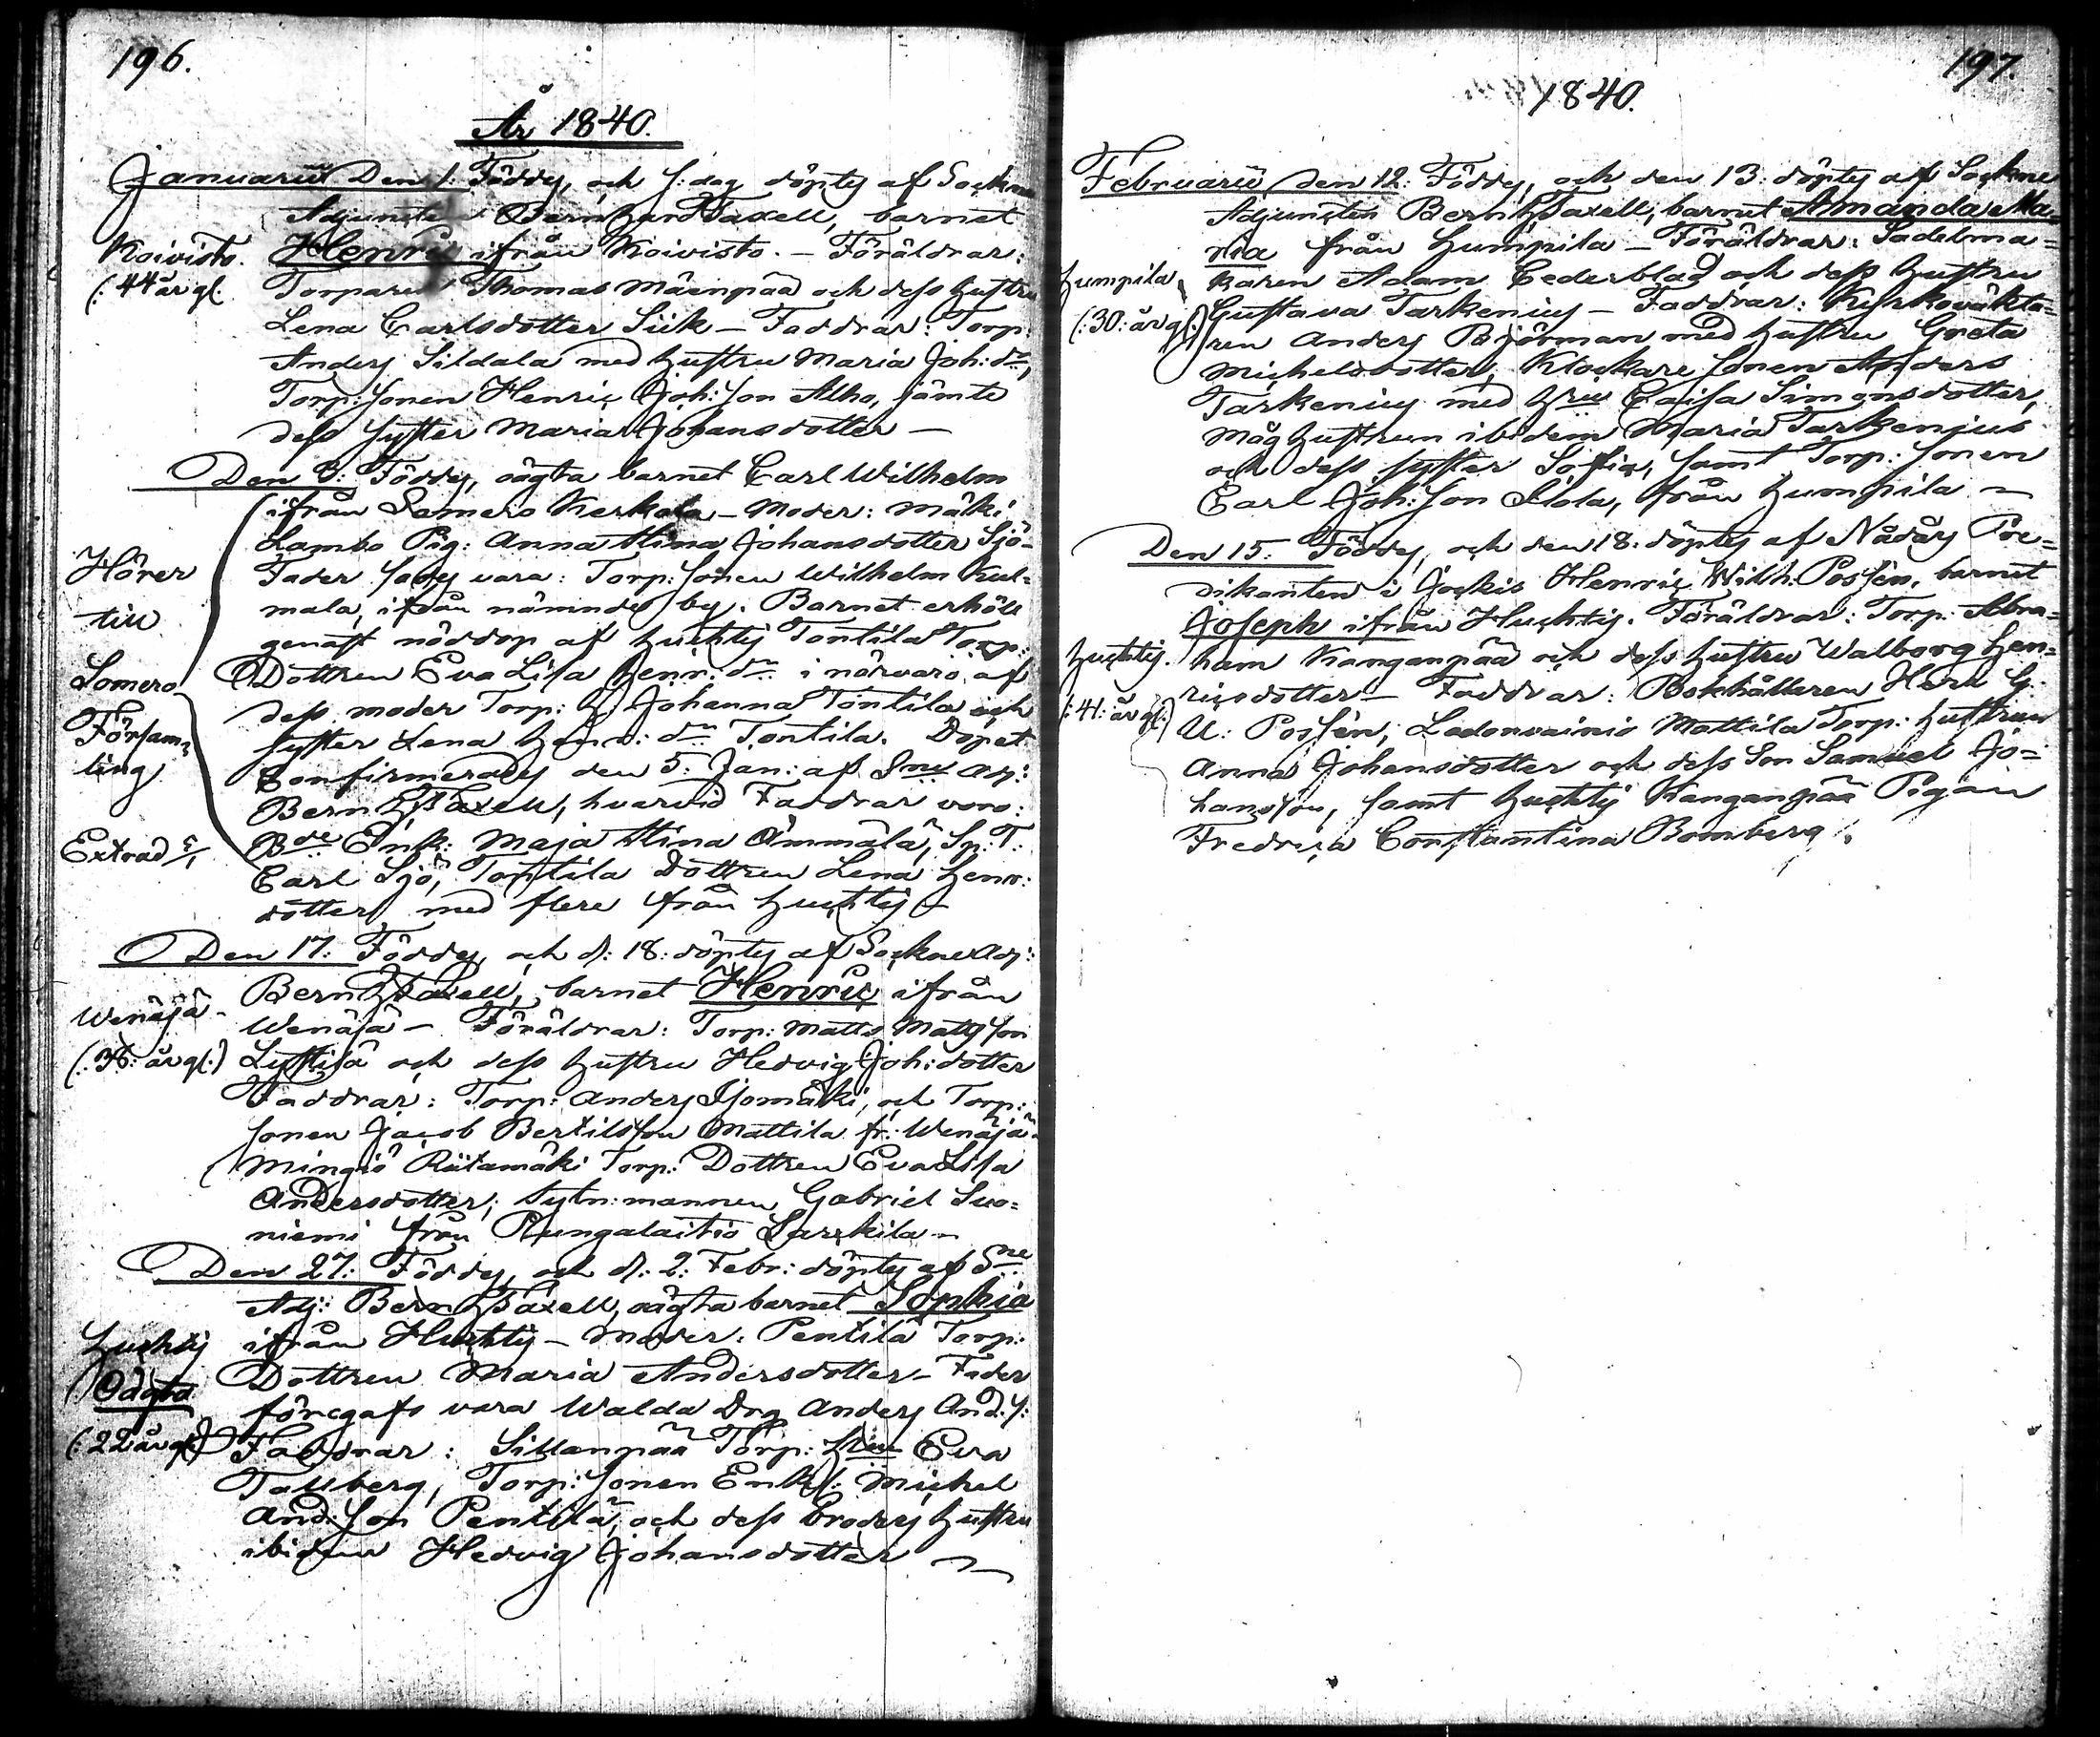 196.
År 1840.
Januarii Den 1: Föddes, och s: dag döptes af Sockne
Adjuncten Bernhard Taxell, barnet
Koivisto. Henric ifrån Koivisto. – Föräldrar:
(: 44 år gl. Torparen Thomas Mäenpää och dess hustru
Lena Carlsdotter Siik – Faddrar: Torp:
Anders Sildala med hustru Maria Joh: dr,
Torp: Sonen Henric Joh: Son Alho, jämte
dess Syster Maria Johansdotter –
Den 3: Föddes, oägta barnet Carl Wilhelm
ifrån Somero Kerkola – Moder: Mäki
Lambo Pig: Anna Stina Johansdotter Sjö-
Hörer Fader säges vara: Torp: Sonen Wilhelm Kul=
till mala, ifrån nämnde by. Barnet erhöll
genast nöddop af Huchtis Tontila Torp:
Somero Dottren Eva Lisa Henr: dr i närvaro af
dess moder Torp: h. Johanna Tontila och
Försam= Syster Lena Henr: dr Tontila. Dopet
ling Confirmerades den 5: Jan: af Sne Adj:
Bern: H Taxell, hvarvid Faddrar voro:
Extrad Bde Enk: Maja Stina Ämmälä, Sp: T:
Carl Sjö, Tontila Dottren Lena Henr:
dotter, med flere från Huchtis –
Den 17: Föddes, och d: 18: döptes af Sockne Adj:
Bern H Taxell, barnet Henric ifrån
Wenäjä – Wenäjä – Föräldrar: Torp: Matts Matts Son
(: 36: år gl:) och dess hustru Hedvig Joh: dotter
Faddrar: Torp: Anders Isomäki, och Torp:
Sonen Jacob Bertilsson Mattila fr: Wenäjä
Mingiö Riitamäki Torp: Dottren Eva Lisa
Andersdotter; Sytn: mannen Gabriel Suo=
niemi från Rungalaitio Sarkila –
Den 27: Föddes, och d: 2: Febr: döptes af Sne
Adj: Bern H Taxell, oägta barnet Sophia
Huchtis ifrån Huchtis – Moder: Pentilä Torp:
Oägta Dottren Maria Andersdotter – Fader
föregafs vara Walda Drg Anders And: S:
(: 22 år gl:) Faddrar: Sillanpää Torp: hru Eva
Tallberg, Torp: Sonen Enkl: Michel
And: Son Pentilä, och dess Broders hustru
ibidem Hedvig Johansdotter –
197.
1840.
Februarii den 12: Föddes, och den 13: döptes af Sockne
Adjuncten Bern: H Taxell, barnet Amanda Ma=
ria från Humpila – Föräldrar: Sadelma=
Humpila karen Adam Cederblad och dess hustru
(: 30: år gl:) Gustava Tarkenius – Faddrar: Kyrkoväkta=
ren Anders Björman med hustru Greta
Michelsdotter, Klockare Sonen Anders
Tarkenius med hru Caisa Simonsdotter,
Måg hustrun ibidem Maria Tarkenius
och dess Syster Sofia, samt Torp: Sonen
Carl Joh: Son Slola, från Humpila –
Den 15: Föddes, och den 18: döptes af Nådårs Pre=
dikanten i Jockis Henric Wilh: Possén, barnet
Joseph ifrån Huchtis. Föräldrar: Torp: Abra=
Huchtis. ham Kanganpää och dess hustru Walborg Hen=
ricsdotter – Faddrar: Bokhållaren Herr G:
(: 41: år gl:) U: Possén, Ladonvainio Mattila Torp: hustrun
Anna Johansdotter och dess Son Samuel Jo=
hansson, samt Huchtis Kanganpää Pigan
Fredrica Constantina Bomberg /.